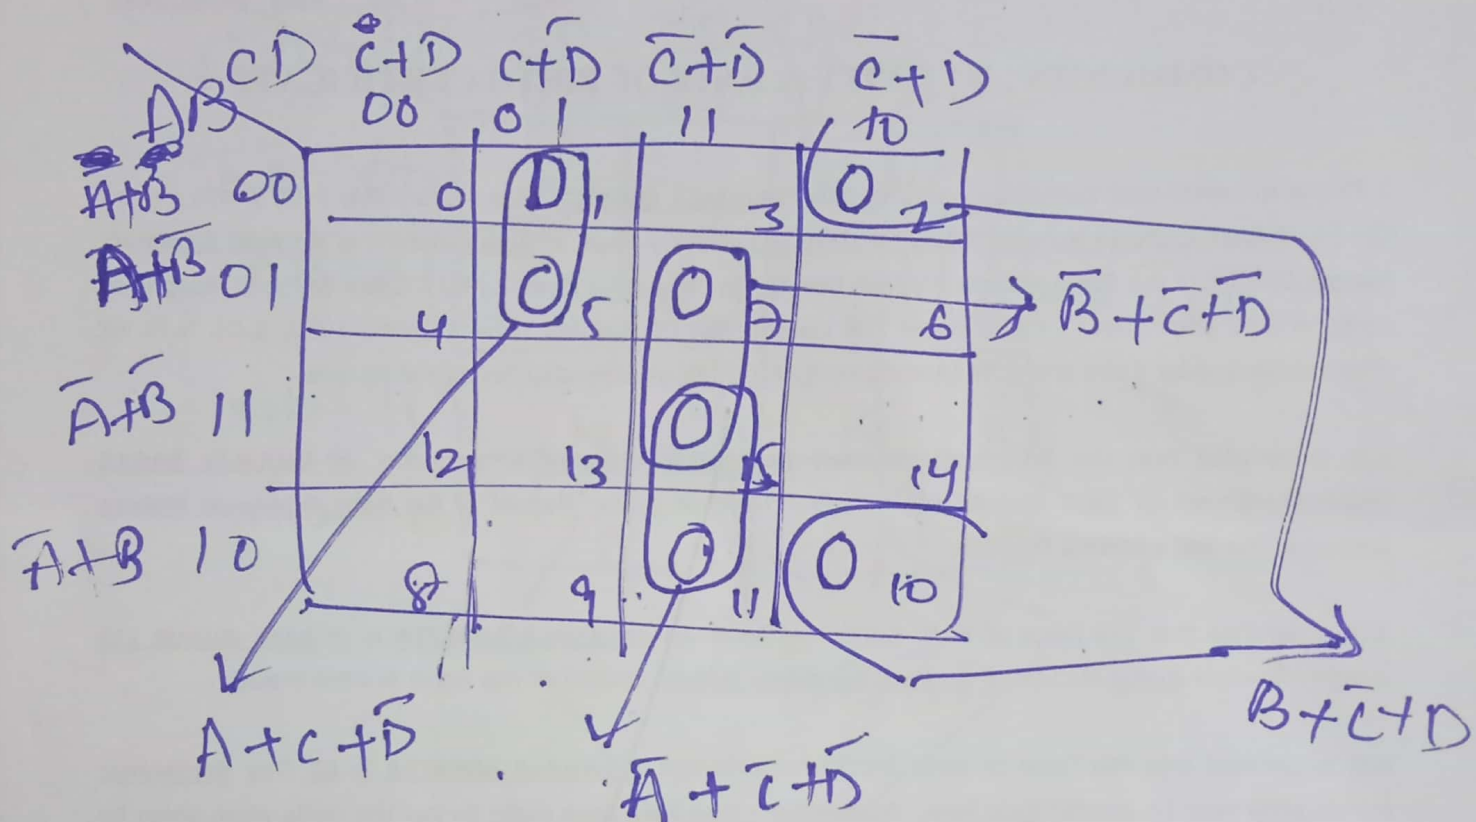 CD C+D C+D̅ C̅+D̅ C̅+D
AB 00 01 11 10
A+B 00 0 0 1 3 0 2
A+B̅ 01 4 0 5 0 7 6 B̅+C̅+D̅
A̅+B̅ 11 12 13 0 15 14
A̅+B 10 8 9 0 11 0 10
B+C̅+D
A+C+D̅
A̅+C̅+D̅